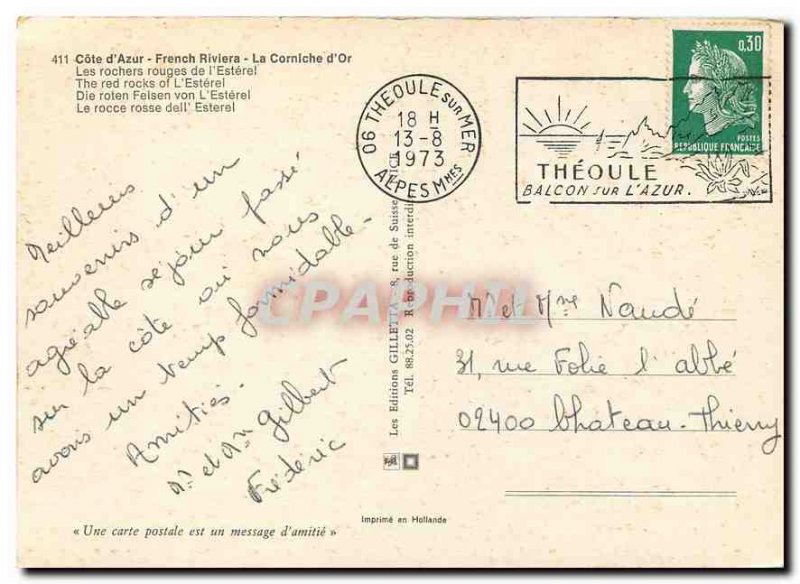 411 Côte d'Azur - French Riviera - La Corniche d'Or
Les rochers rouges de l'Estérel
The red rocks of L'Estérel
Die roten Felsen von L'Estérel
Le rocce rosse dell' Esterel
06 THEOULE SUR MER
18 H
13-8
1973
ALPES Mmes
THÉOULE
BALCON SUR L'AZUR.
0,30
POSTES
REPUBLIQUE FRANÇAISE
Meilleurs
souvenirs d'un
agréable séjour passé
sur la côte où nous
avons un temps formidable-
Amitiés.
Mr et Mme Gilbert
Frédéric
Les Editions GILLETTA - 8, rue de Suisse, NICE
Tél. 88.25.02 Reproduction interdite
CPAPHIL
Mr et Mme Naudé
31, rue Folie l'abbé
02400 Chateau-Thierry
Imprimé en Hollande
« Une carte postale est un message d'amitié »